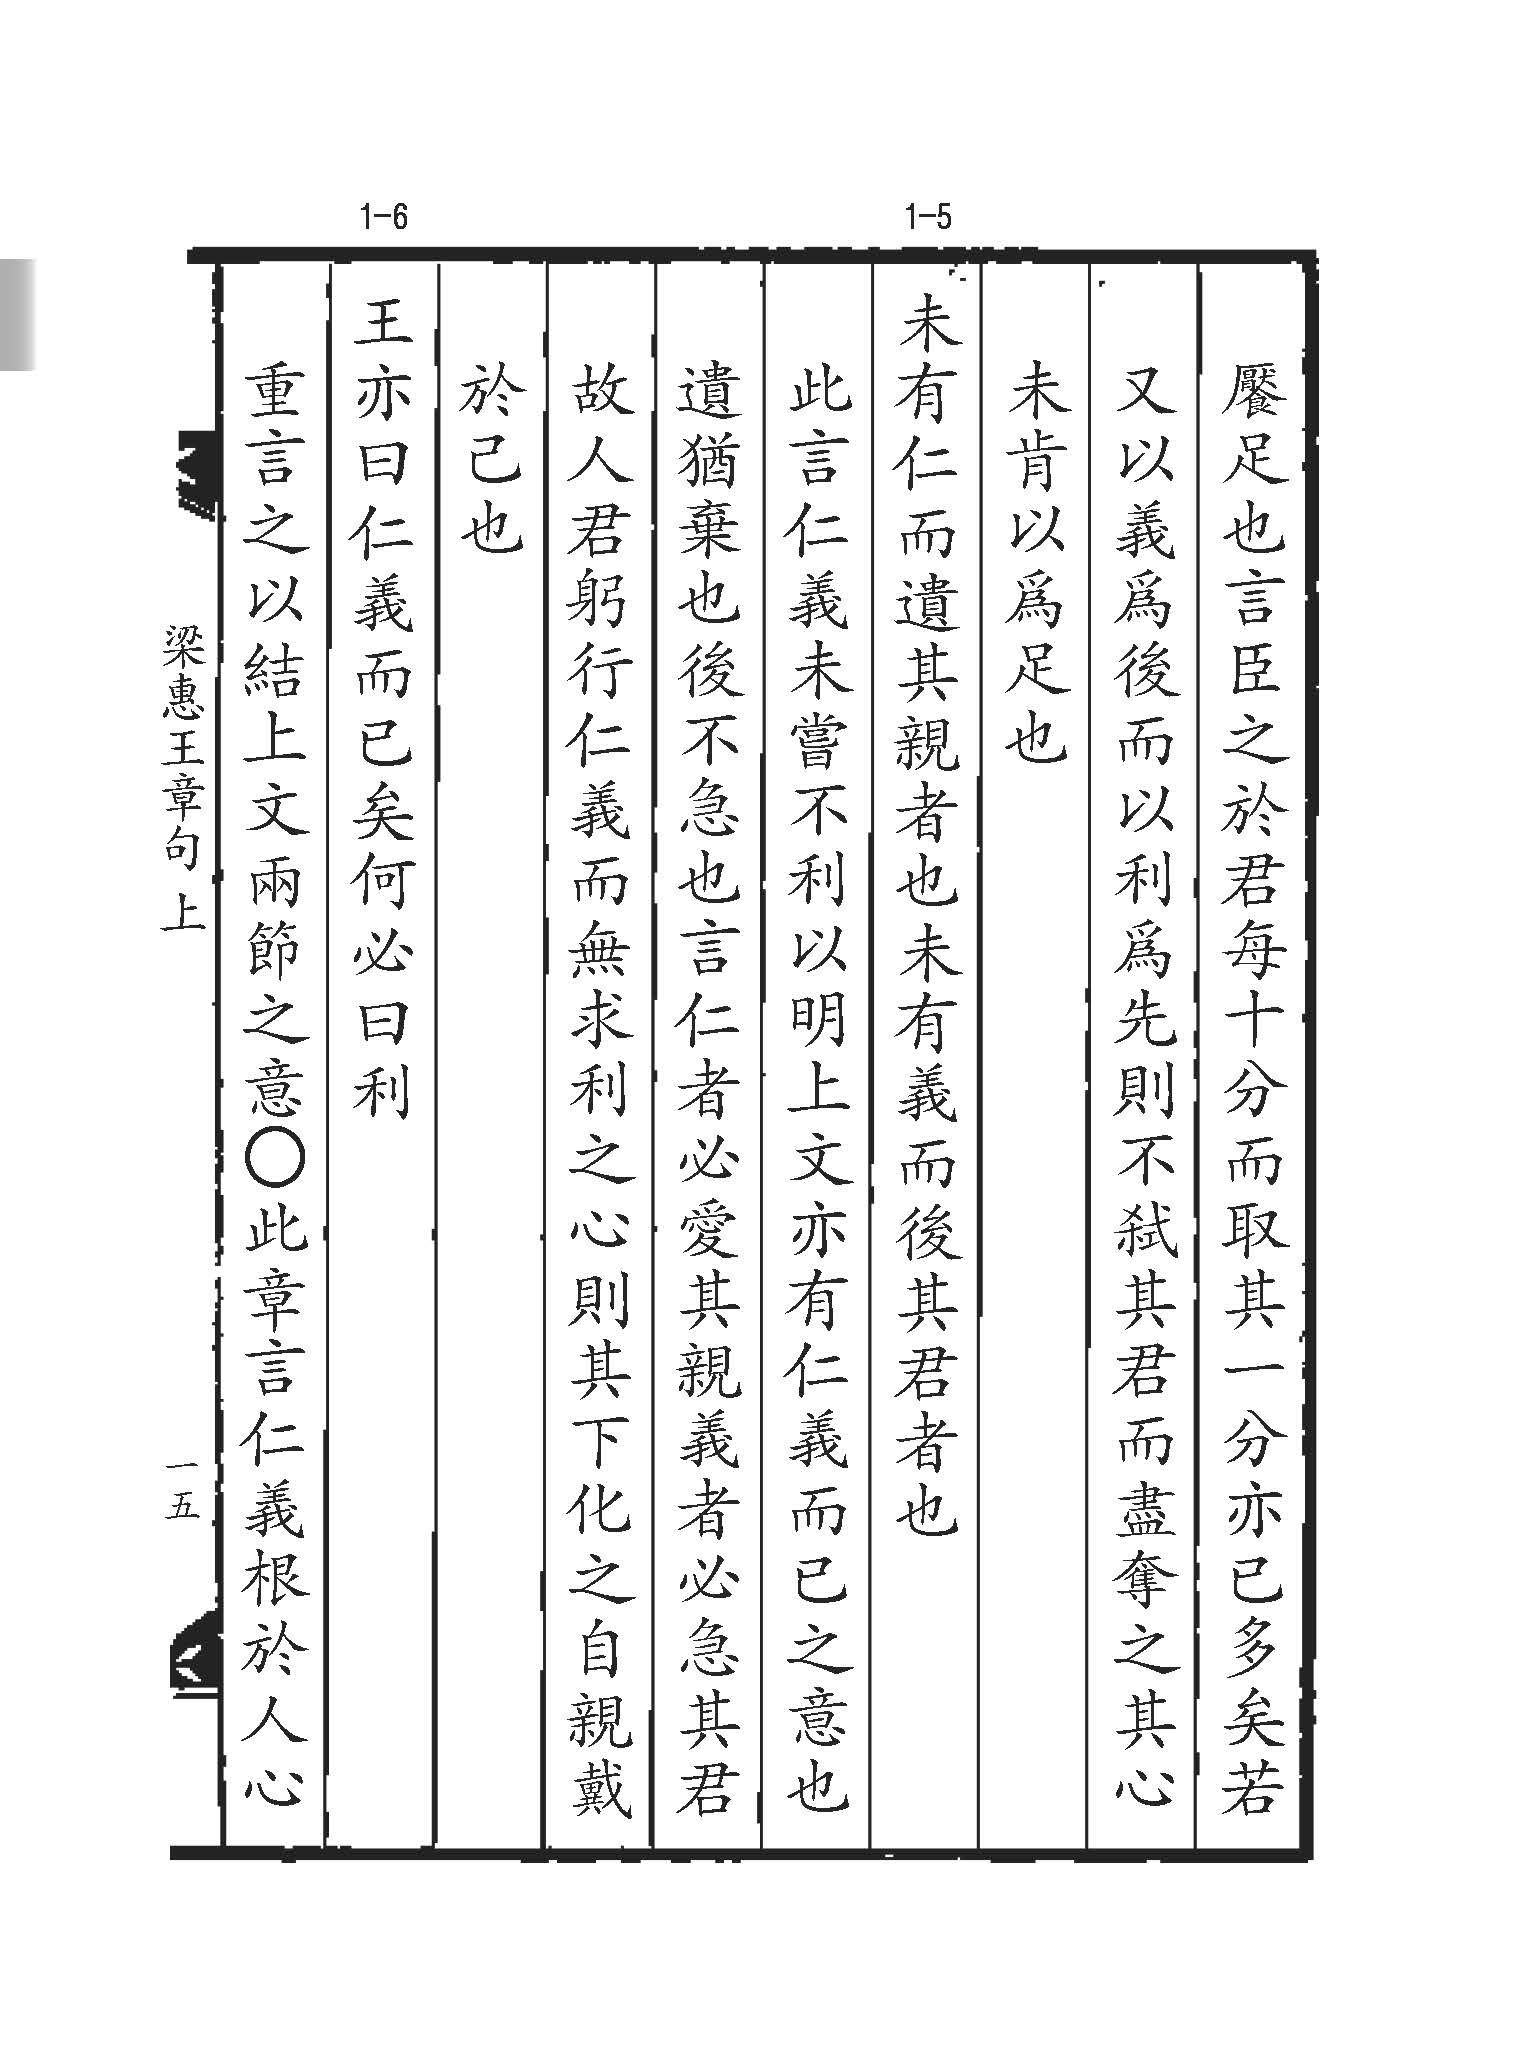 1-5
1-6
饜足也言臣之於君每十分而取其一分亦已多矣若
又以義爲後而以利爲先則不弑其君而盡奪之其心
未肯以爲足也
未有仁而遺其親者也未有義而後其君者也
此言仁義未嘗不利以明上文亦有仁義而已之意也
遺猶棄也後不急也言仁者必愛其親義者必急其君
故人君躬行仁義而無求利之心則其下化之自親戴
於己也
王亦曰仁義而已矣何必曰利
重言之以結上文兩節之意○此章言仁義根於人心
梁惠王章句上
一五